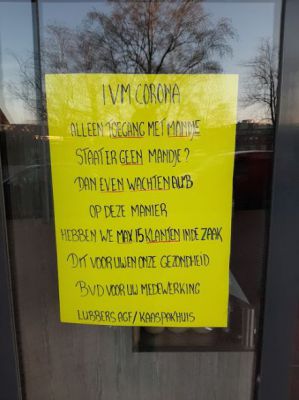 IVM CORONA
ALLEEN TOEGANG MET MANDJE
STAAT ER GEEN MANDJE?
DAN EVEN WACHTEN AUB
OP DEZE MANIER
HEBBEN WE MAX 15 KLANTEN IN DE ZAAK
DIT VOOR UW EN ONZE GEZONDHEID
BVD VOOR UW MEDEWERKING
LUBBERS AGF/KAASPAKHUIS